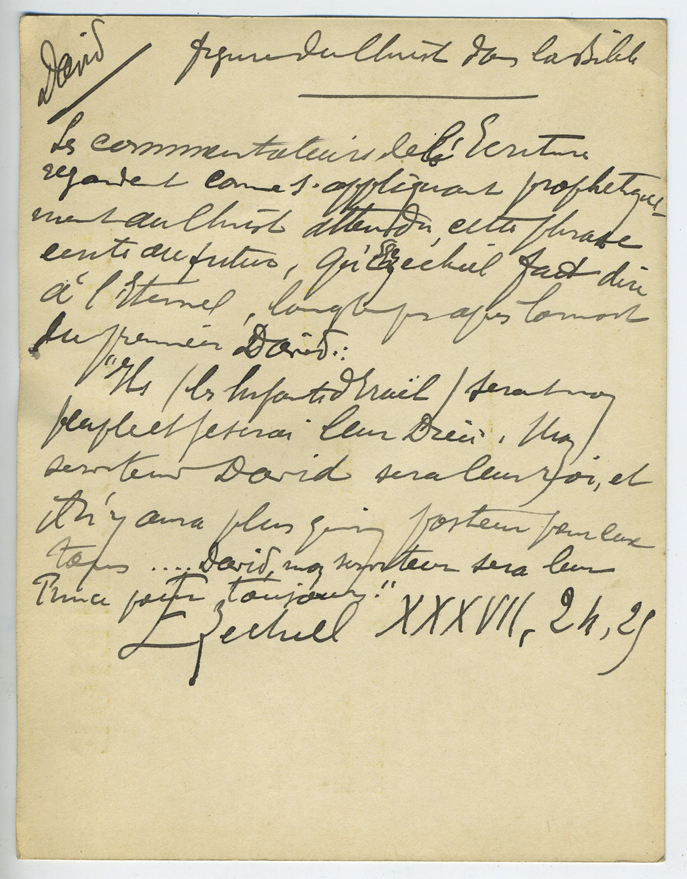 David
figure du Christ dans la Bible
Les commentateurs de l'Ecriture
regardent comme s'appliquant prophétique-
ment au Christ attendu, cette phrase
écrite au futur, qu'Ezéchiel fait dire
à l'Eternel, longtemps après la mort
du premier David :
"Ils (les Enfants d'Israël) seront mon
peuple et je serai leur Dieu. Mon
serviteur David sera leur roi, et
il n'y aura plus qu'un pasteur pour eux
tous .... David, mon serviteur sera leur
Prince pour toujours."
Ezechiel XXXVII, 24, 25